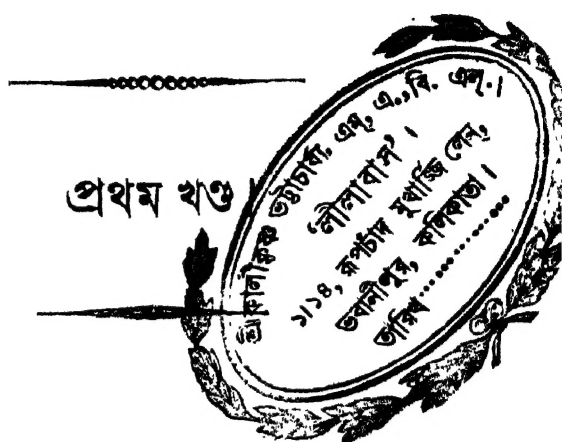 প্রথম খণ্ড।
শ্রীকালীকৃষ্ণ ভট্টাচার্য্য. এম্, এ.,বি. এল্.।
‘লীলাবাস’।
১/১৪, রূপচাঁদ মুখার্জ্জি লেন,
ভবানীপুর, কলিকাতা।
তারিখ..................